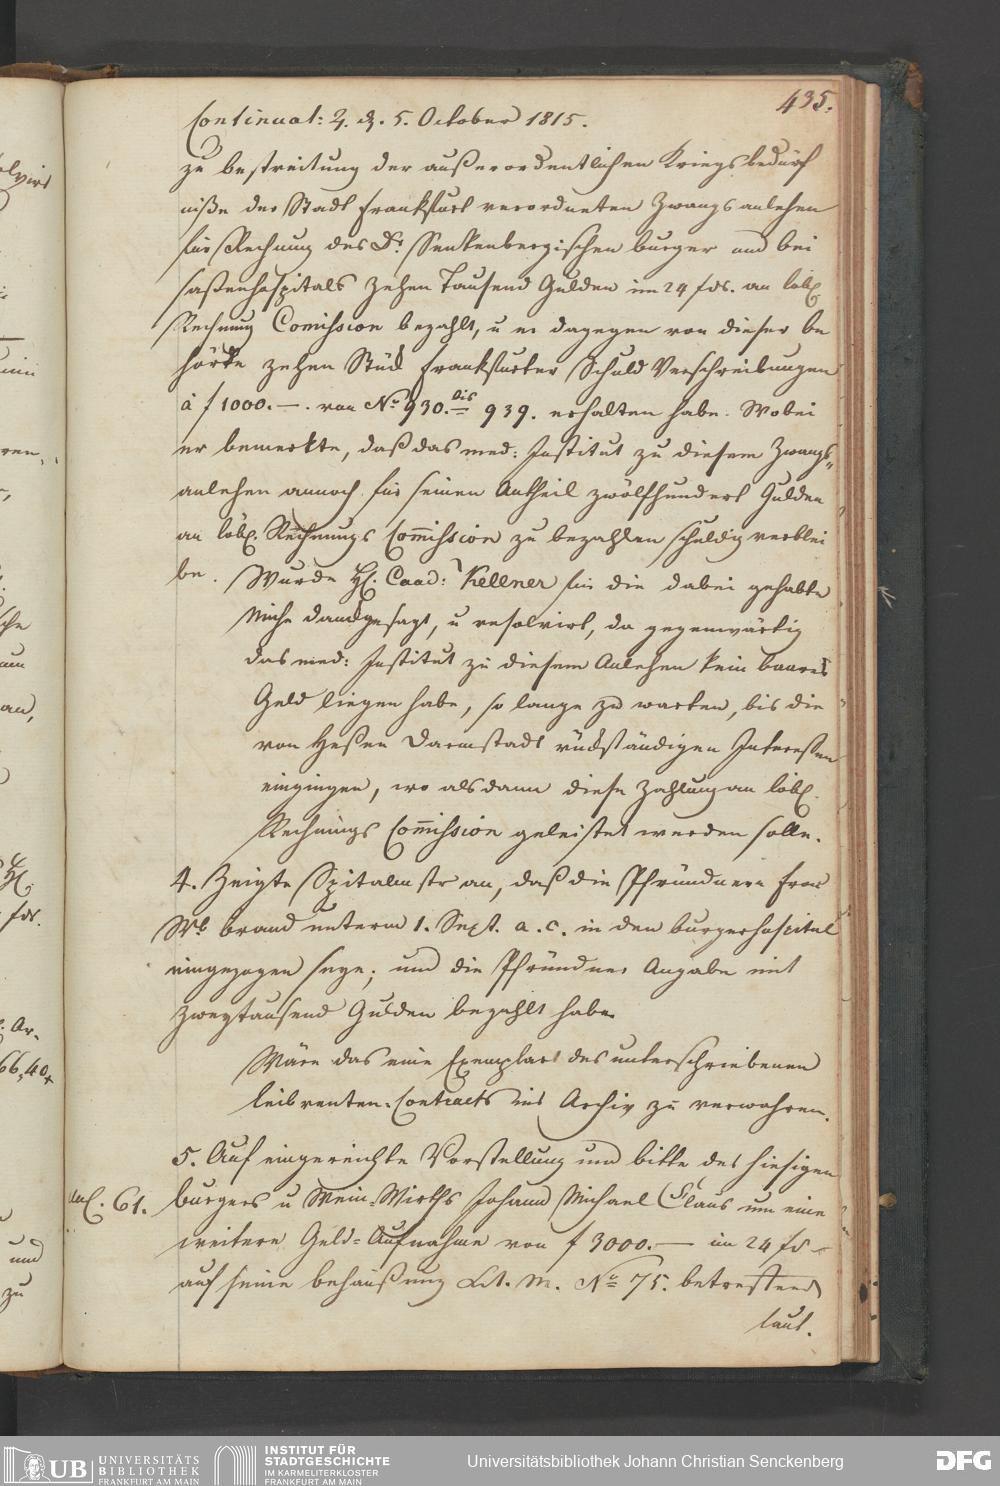 435.
Continuat: 4. d. 5. October 1815.
zu bestreitung der außerordentlichen Kriegsbedürf
niße der Stadt Frankfurt verordneten Zwangsanlehen
für Rechnung des Dr. Senkenbergischen burger und bei
saßenhospitals Zehen Tausend Gulden im 24 fds. an löbl.
Rechnung Comission bezahlt, u er dagegen von dieser be
hörde zehen Stück Frankfurter Schuld Verschreibungen
à f 1000. —. von No. 930. bis 939. erhalten habe. Wobei
er bemerkte, daß das med: Institut zu diesem Zwangs„
anlehen annoch für seinen Antheil zwölfhundert Gulden
an löbl. Rechnungs Com̅ission zu bezahlen schuldig verblei
be. Wurde H. Cand: Kellner für die dabei gehabte
Mühe dank gesagt, u resolvirt, da gegenwärtig
das med: Institut zu diesem Anlehen kein baares
Geld liegen habe, so lange zu warten, bis die
von Heßen Darmstadt rückständigen Interessen
eingingen, wo alsdann diese Zahlung an löbl.
Rechnungs Com̅ission geleistet werden solle.
4. Zeigte Spitalmstr an, daß die Pfründnerin Frau
Wb. brand unterm 1. Sept. a. c. in den burgerhospital
eingezogen seye; und die Pfründner Angabe mit
Zweytausend Gulden bezahlt habe
Wäre das eine Exemplar des unterschriebenen
leibrenten-Contracts ins Archiv zu verwahren.
5. Auf eingereichte Vorstellung und bitte des hiesigen
Anl. 61.
burgers u Wein-Wirths Johann Michael Claus um eine
weitere Geld-Aufnahme von f 3000. — im 24 fds
auf seine behaußung Lit. M. No. 75. betreffend
laut.
UB UNIVERSITÄTS
BIBLIOTHEK
FRANKFURT AM MAIN
INSTITUT FÜR
STADTGESCHICHTE
IM KARMELITERKLOSTER
FRANKFURT AM MAIN
Universitätsbibliothek Johann Christian Senckenberg
DFG